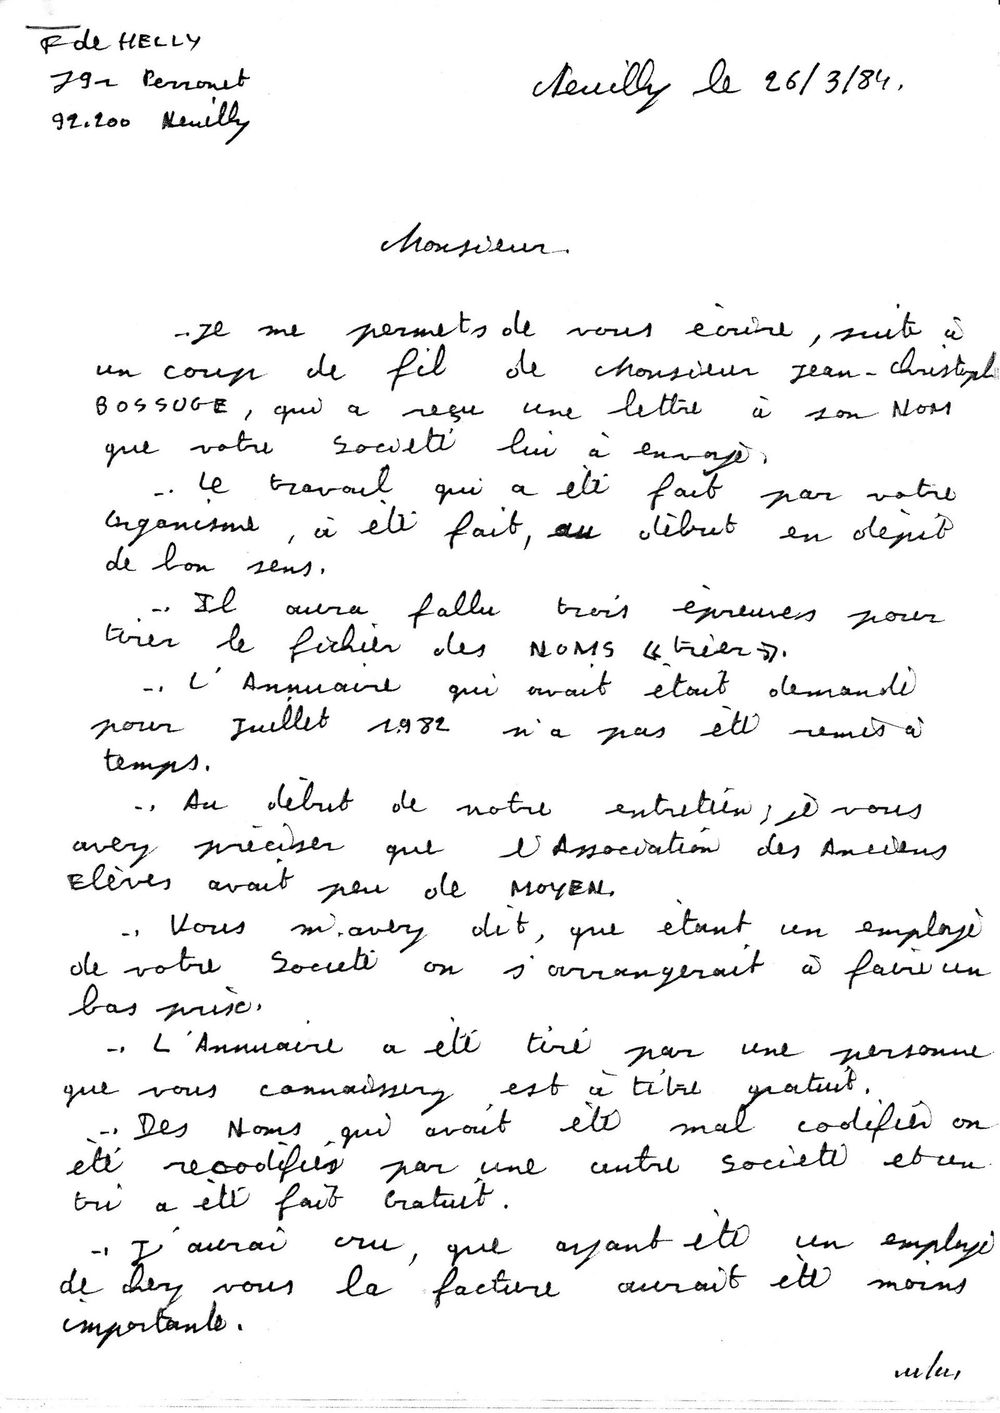 F de HELLY
79 r Perronet
92.200 Neuilly
Neuilly le 26/3/84.
Monsieur.
-. Je me permets de vous écrire, suite à
un coup de fil de Monsieur Jean-Christoph
BOSSUGE, qui a reçu une lettre à son NOM
que votre Société lui à envoyé.
-. Le travail qui a été fait par votre
Organisme, à été fait, au début en dépit
de bon sens.
-. Il aura fallu trois épreuves pour
tirer le fichier des NOMS « trier ».
-. L'Annuaire qui avait était demandé
pour Juillet 1982 n'a pas été remis à
temps.
-. Au début de notre entretien, je vous
avez préciser que l'Association des Anciens
Elèves avait peu de MOYEN.
-. Vous m'avez dit, que étant un employé
de votre Société on s'arrangerait à faire un
bas prix.
-. L'Annuaire a été tiré par une personne
que vous connaissez est à titre gratuit.
-. Des Noms qui avait été mal codifiér on
été recodifiés par une autre Société et un
tri a été fait Gratuit.
-. J'aurai cru, que ayant été un employé
de chez vous la facture aurait été moins
importante.